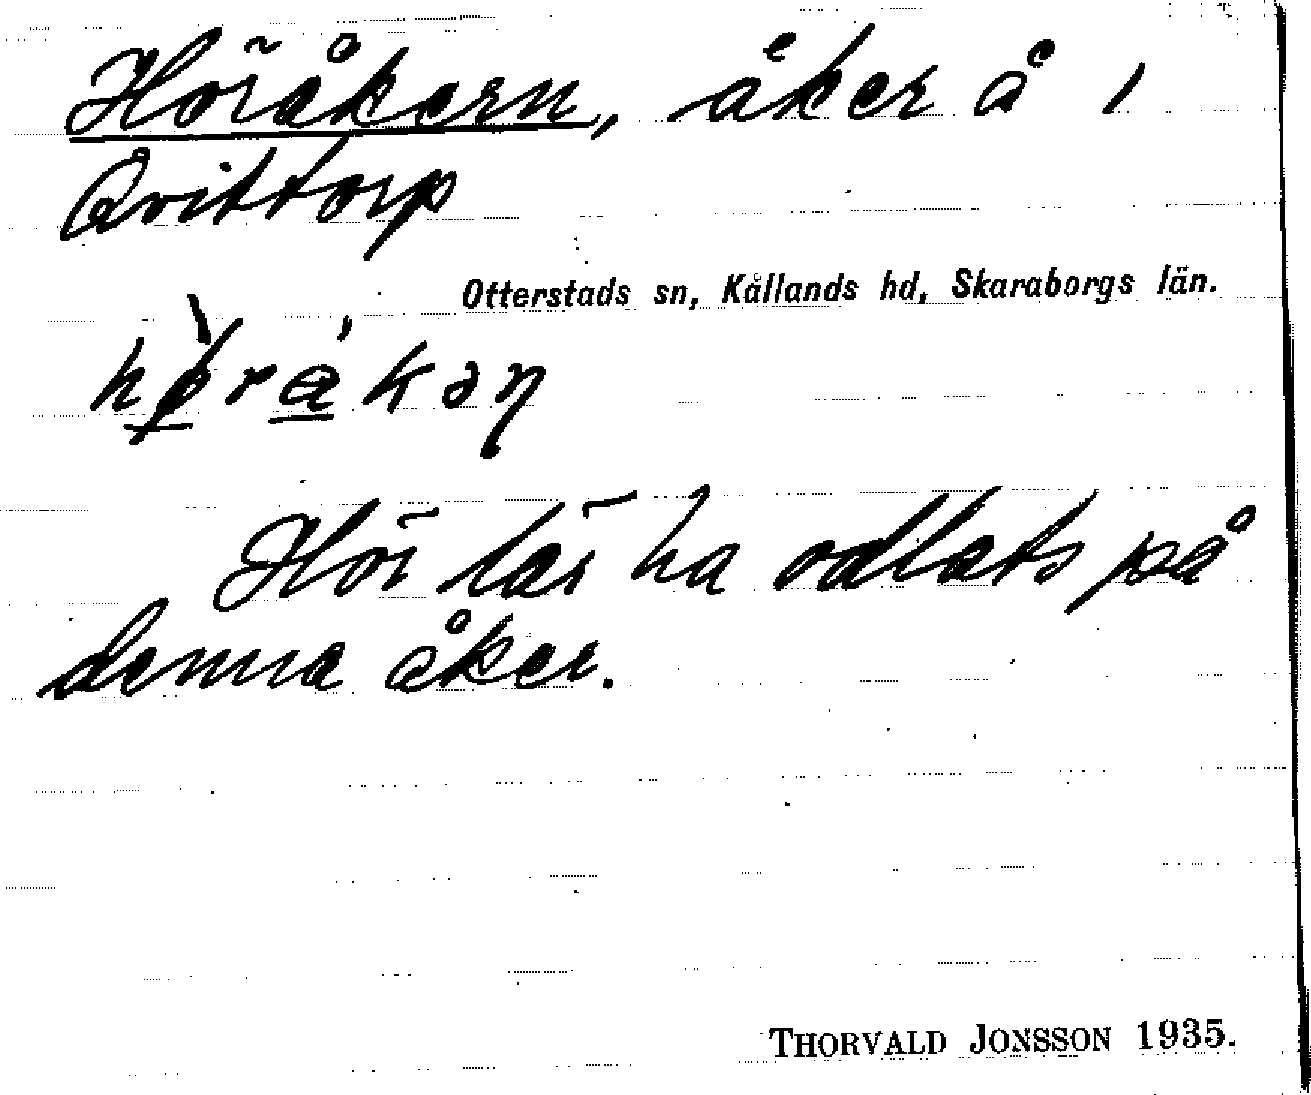 Höråkern, åker å 1
Qvittorp
Otterstads sn, Kållands hd, Skaraborgs län.
hø̀rákəṇ
Hör lär ha odlats på
denna åker.
THORVALD JONSSON 1935.